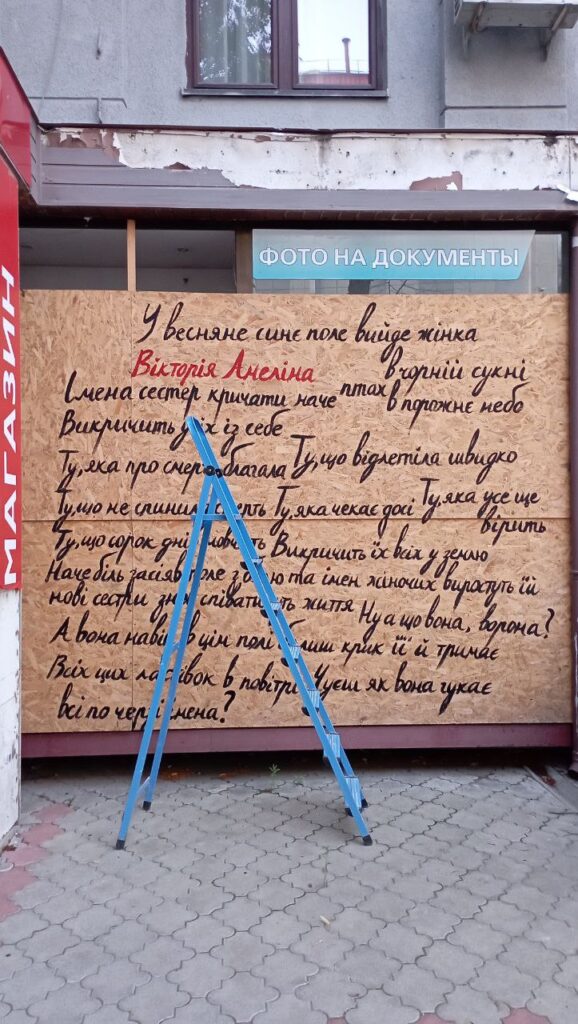 ФОТО НА ДОКУМЕНТЫ
МАГАЗИН
У весняне синє поле вийде жінка
Вікторія Амеліна в чорній сукні
Імена сестер кричати наче птах в порожнє небо
Викричить їх із себе
Ту, яка про смерть благала Ту, що відлетіла швидко
Ту, що не спинила смерть Ту, яка чекає досі Ту, яка усе ще
вірить
Ту, що сорок днів мовчить Викричить їх всіх у землю
Наче біль засіяв поле з болю та імен жіночих виростуть їй
нові сестри знов співатимуть життя Ну а що вона, ворона?
А вона навік в цім полі бо лиш крик її й тримає
Всіх цих ластівок в повітрі Чуєш як вона гукає
всі по черзі імена?